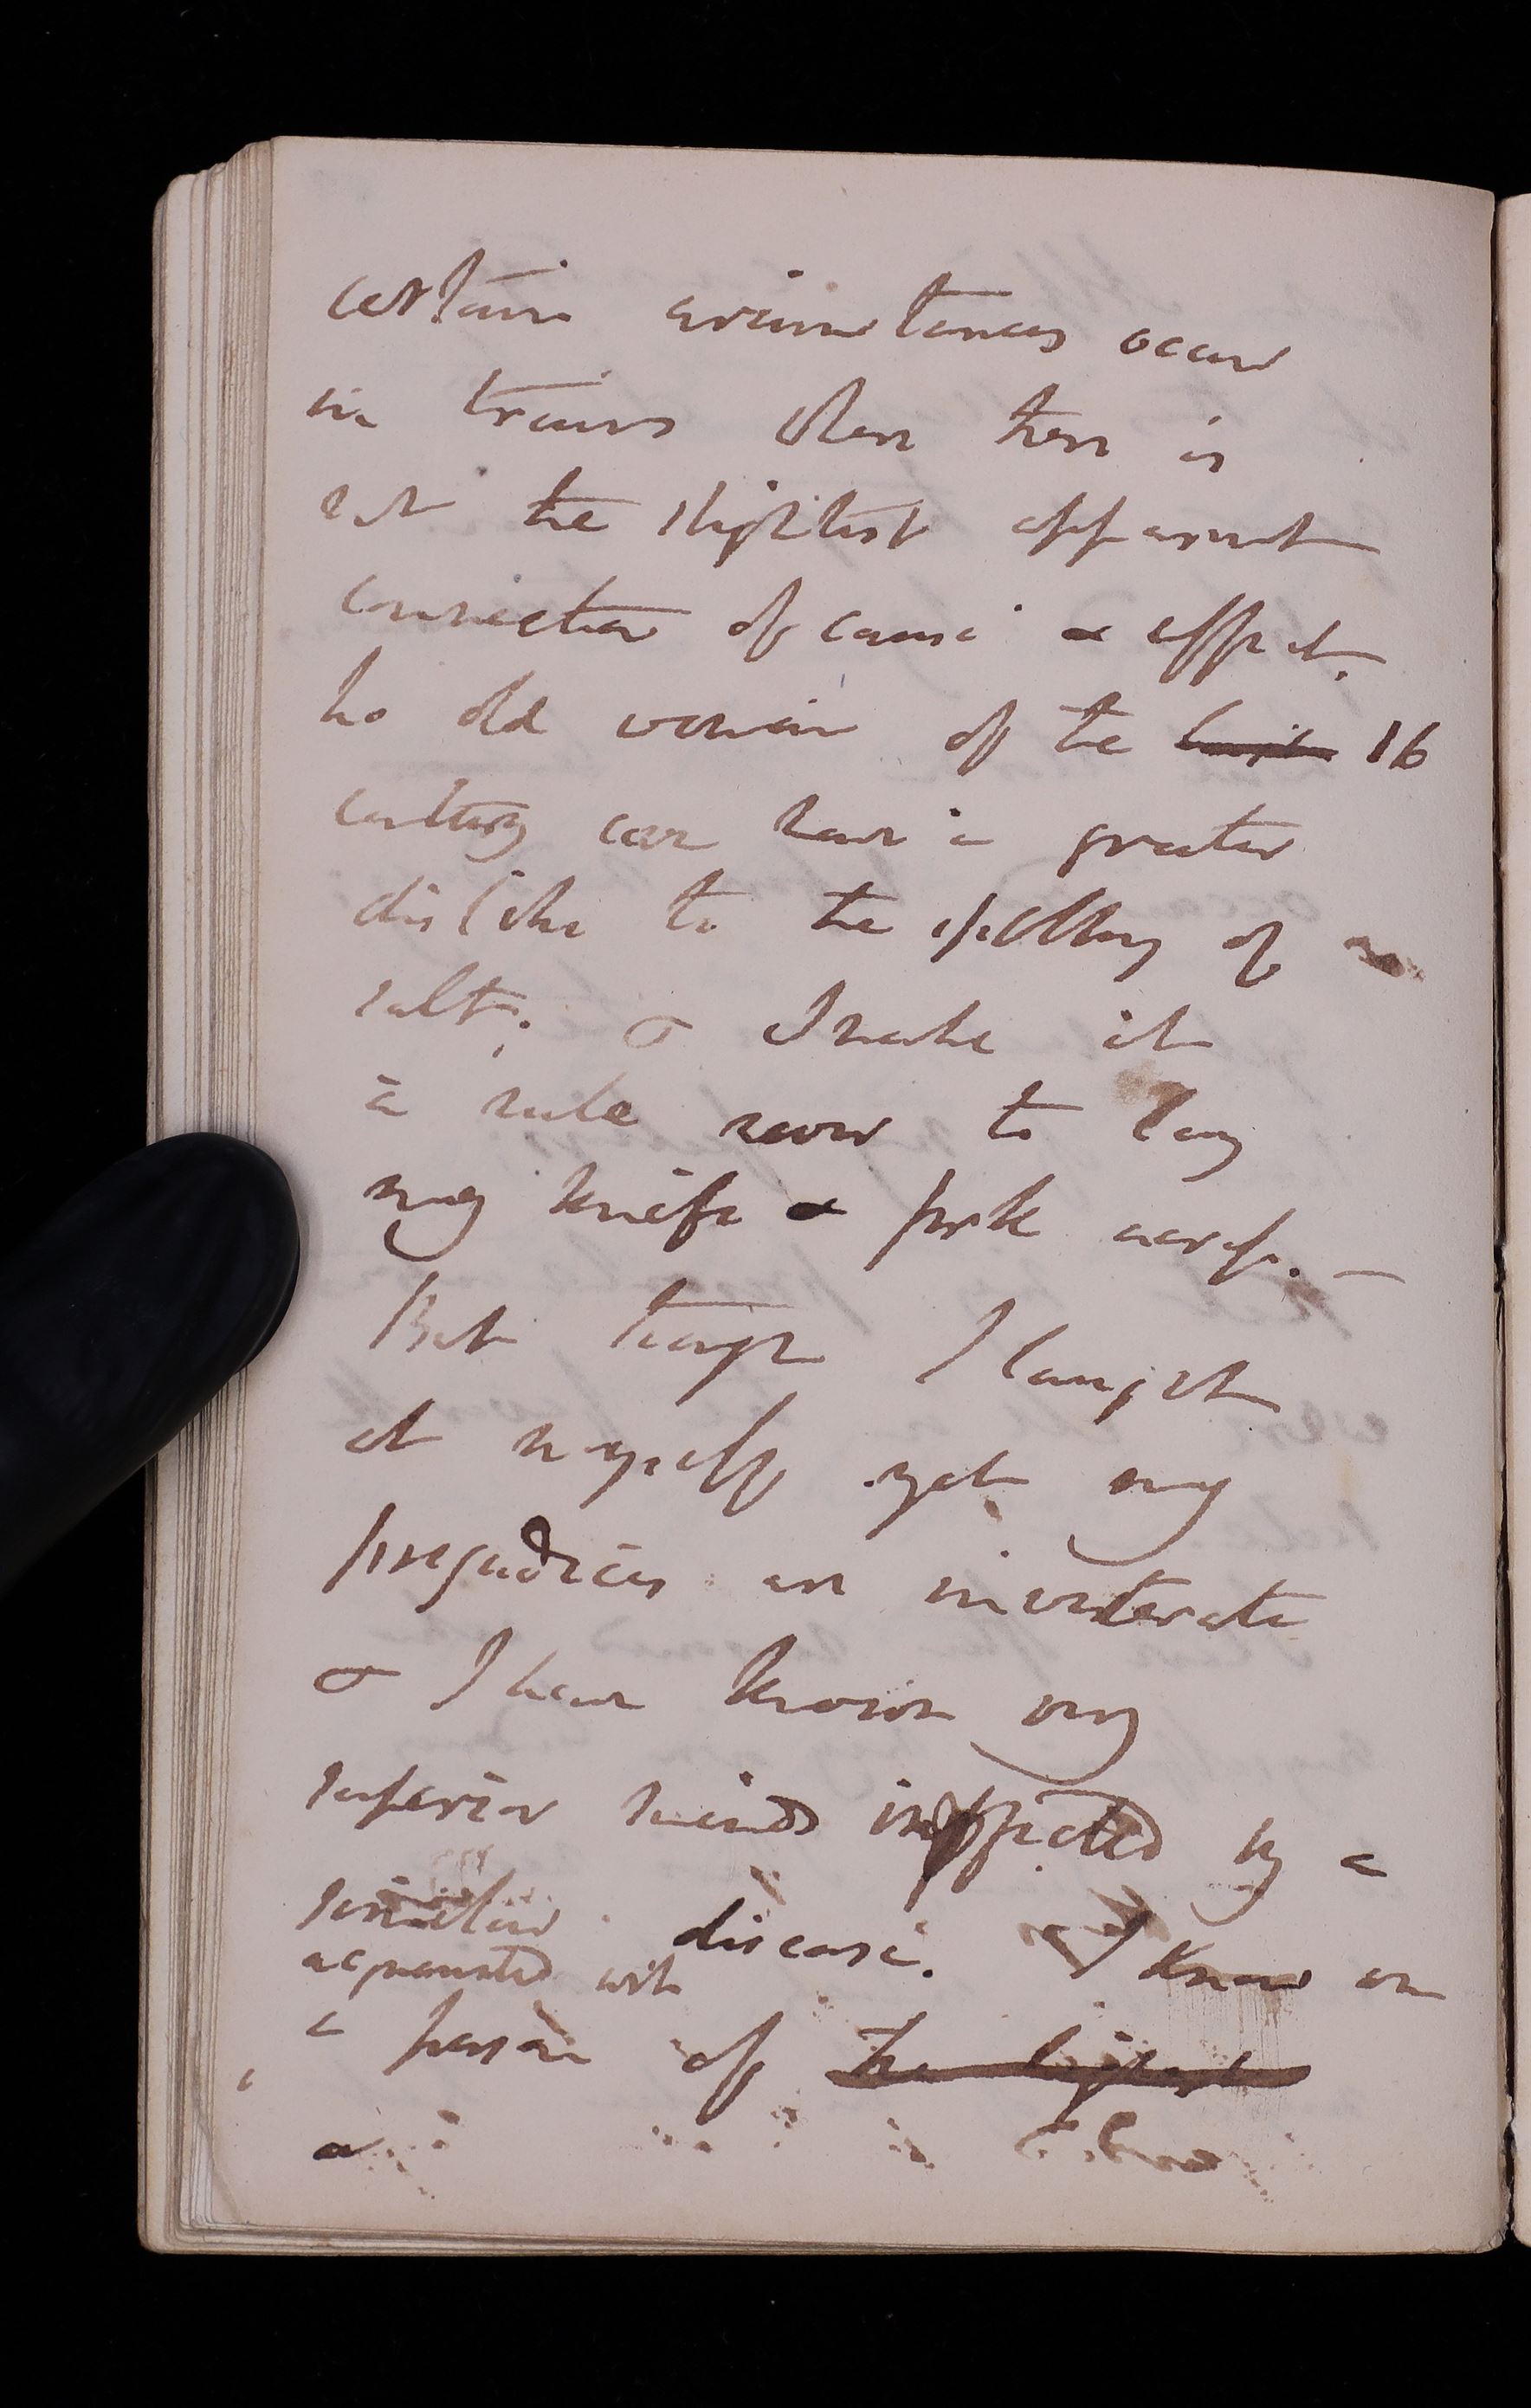 certain circumstances occur
in trains when there is
not the slightest apparent
connection of cause & effect.
No old woman of the 16
century can have a greater
dislike to the spilling of
salt; & I make it
a rule never to lay
my knife & fork across. —
But though I laugh at
at myself yet my
prejudices are inveterate
& I have known very
superior minds infected by a
similar disease. I know am
acquainted with
a person of the highest